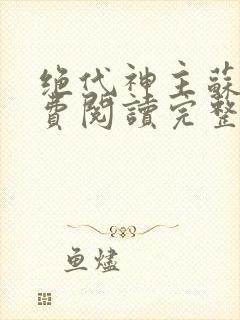 绝代神主蘇
費閱讀完整
鱼燼